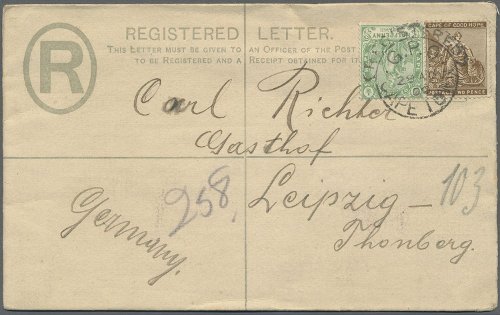 REGISTERED LETTER.
THIS LETTER MUST BE GIVEN TO AN OFFICER OF THE POST
TO BE REGISTERED AND A RECEIPT OBTAINED FOR IT
R
CAPE OF GOOD HOPE
POSTAGE TWO PENCE
G.P.O.
CAPE TOWN
Carl Richter
Gasthof
Leipzig –
Thonberg.
Germany.
258
103